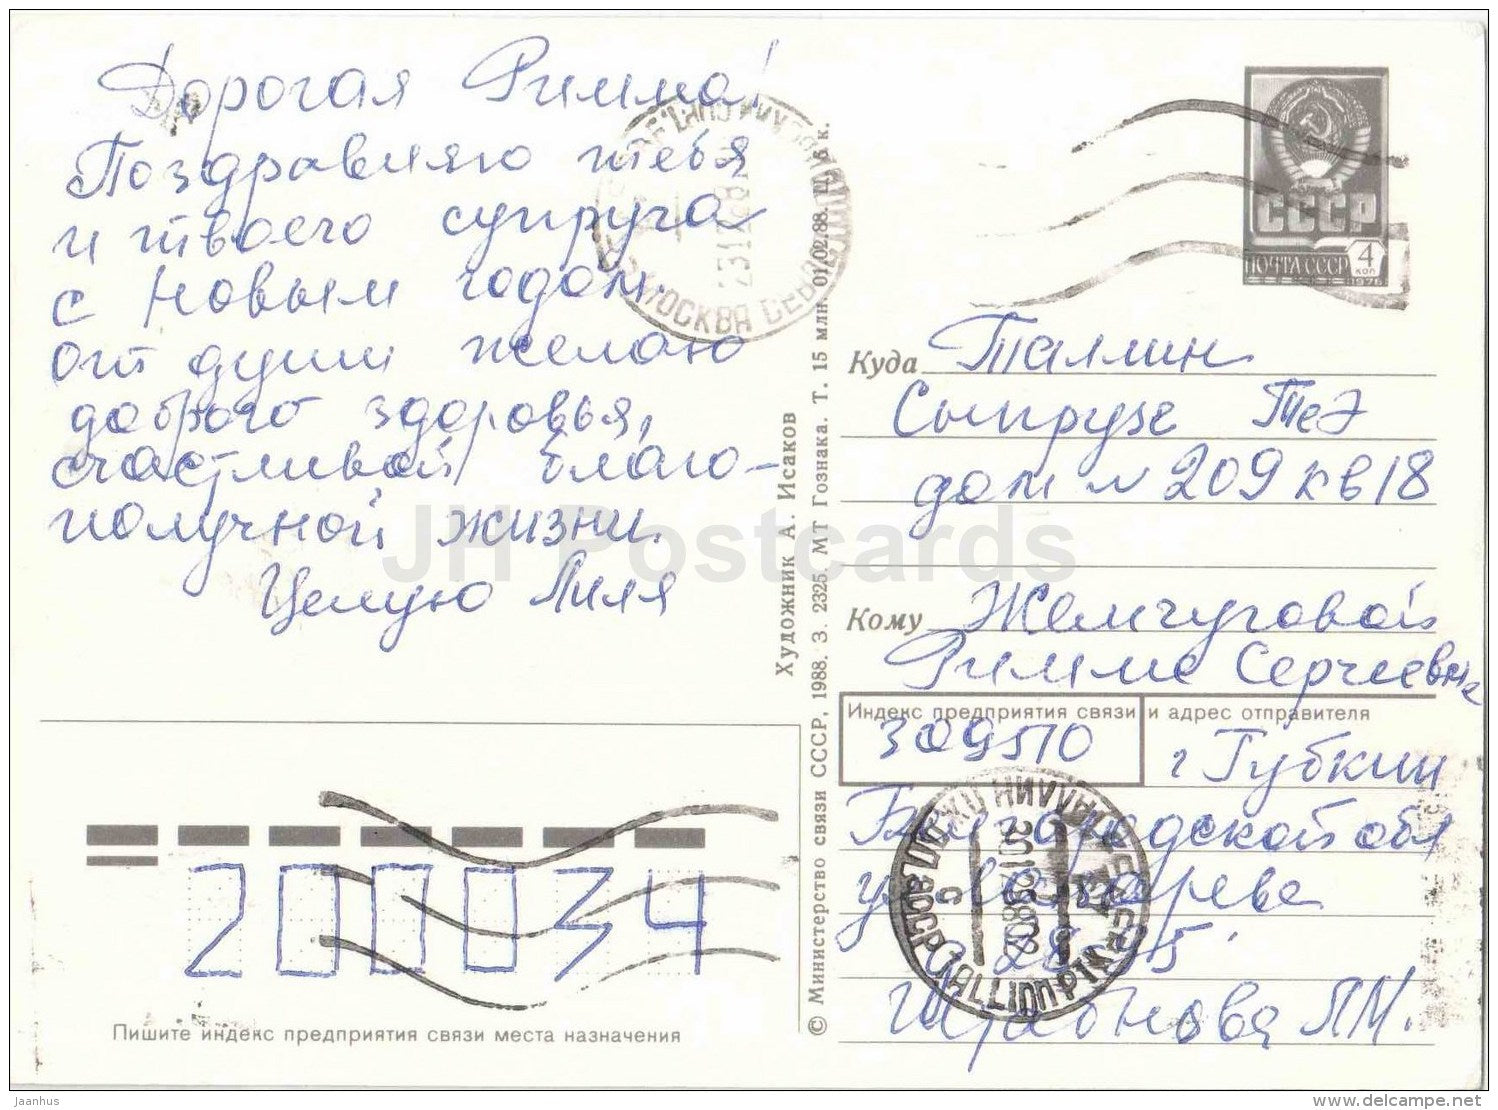 Дорогая Римма!
Поздравляю тебя
и твоего супруга
с Новым годом.
от души желаю
доброго здоровья,
счастливой благо-
получной жизни.
Целую Лиля
СССР
ПОЧТА СССР 4 коп
1976
Куда Таллин
Сыпрузе Теэ
дом № 209 кв 18
Кому Жемчуговой
Римме Сергеевне
Индекс предприятия связи и адрес отправителя
309510
г Губкин
Белгородской обл
28
Л М.
200034
Пишите индекс предприятия связи места назначения
Художник А. Исаков
© Министерство связи СССР, 1988. З. 2325. МТ Гознака. Т. 15 млн. 01.02.88. Ц. 5 к.
МОСКВА
TALLINN
JH Postcards
Jaanhus
www.delcampe.net